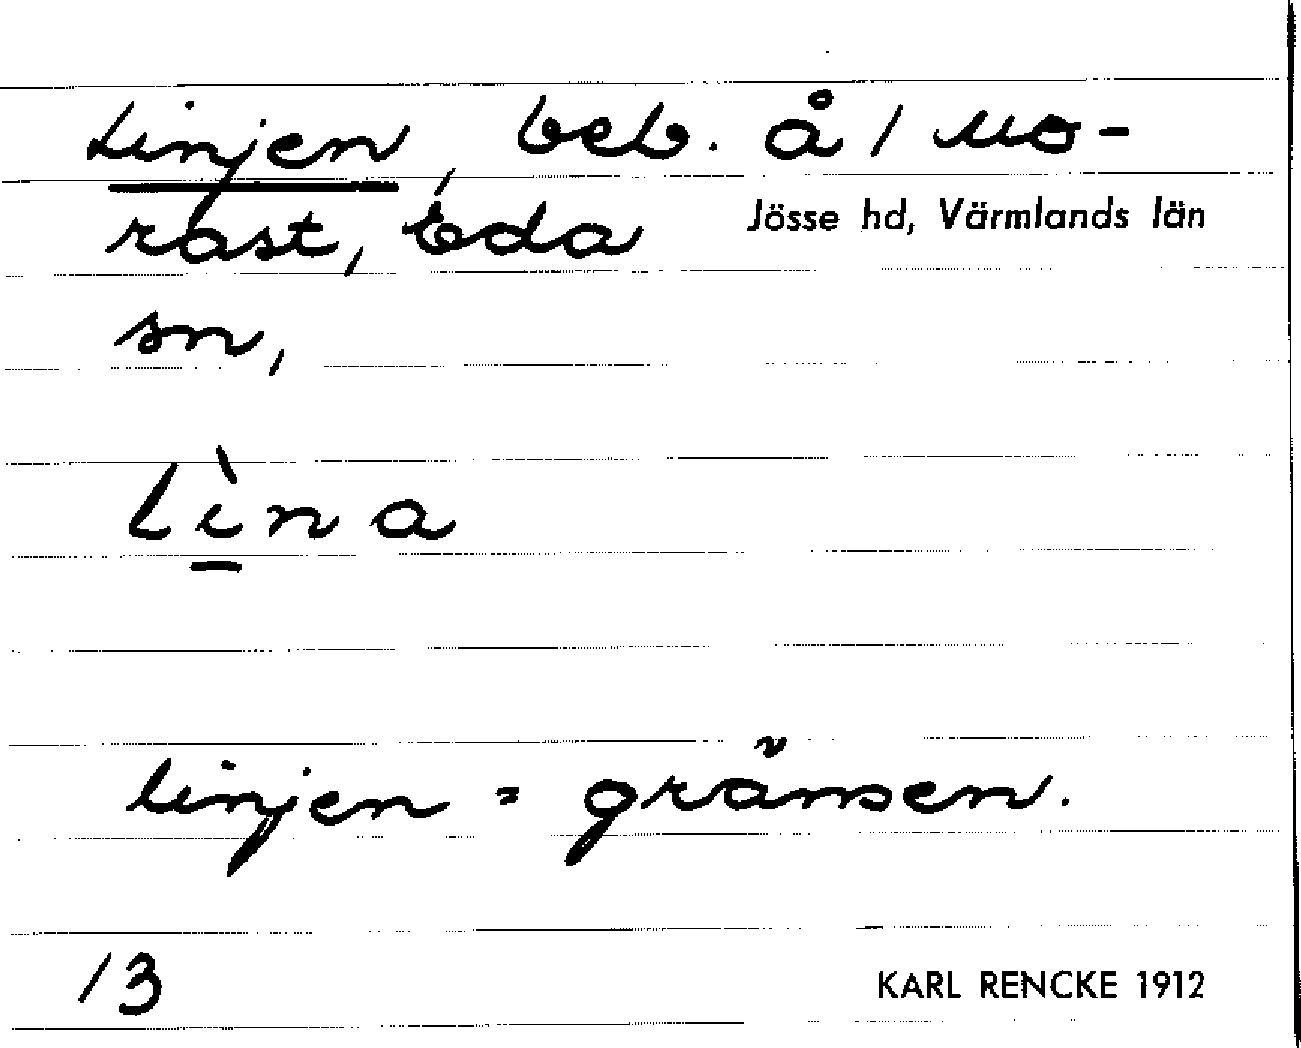 Linjen, beb. å 1 Mo-
rast, Eda Jösse hd, Värmlands län
sn,
lìna
linjen = gränsen.
13 KARL RENCKE 1912